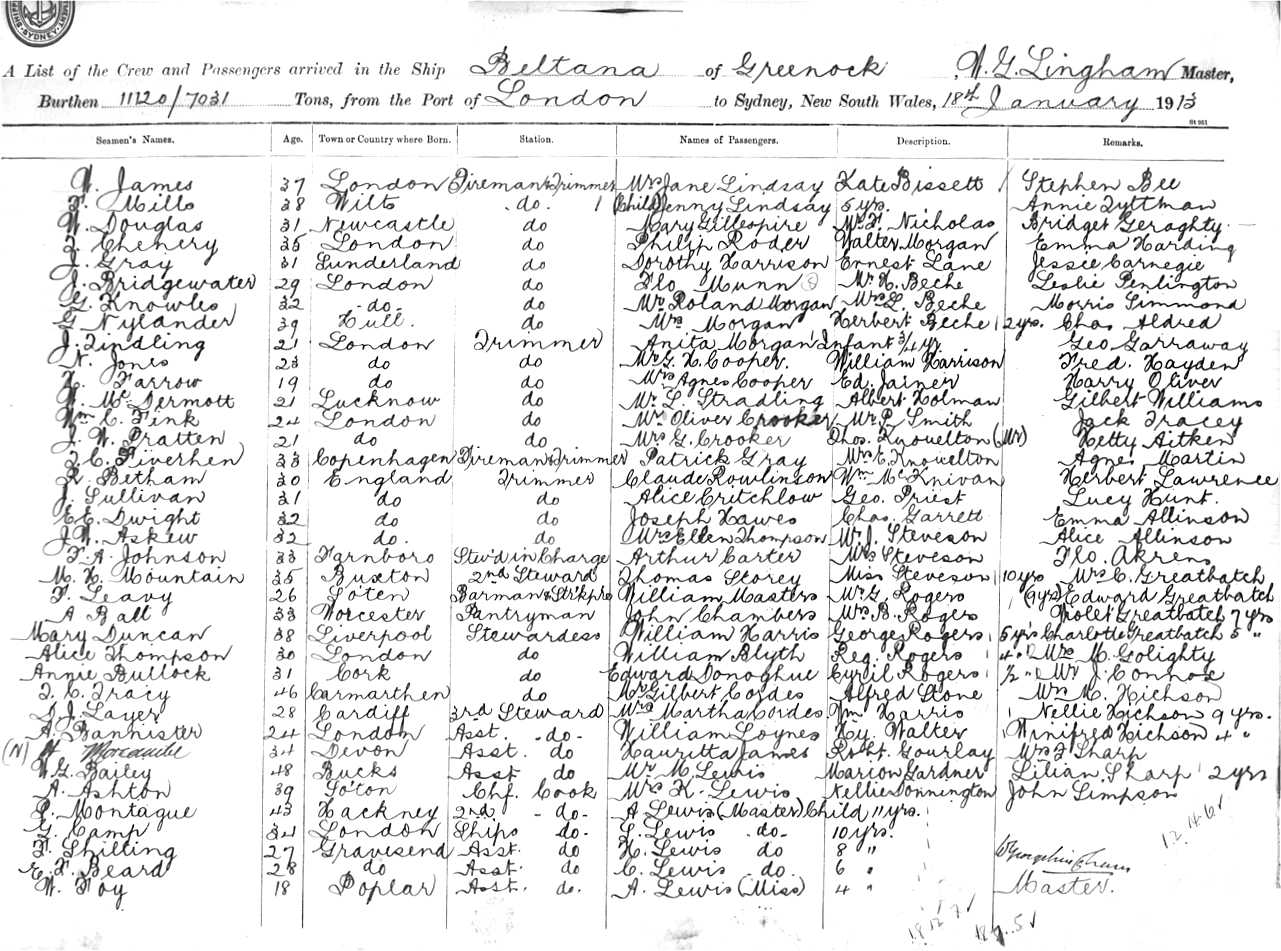 SYDNEY.
A List of the Crew and Passengers arrived in the Ship Beltana of Greenock W. G. Lingham Master,
Burthen 11120/7031 Tons, from the Port of London to Sydney, New South Wales, 18th January 1913
Seamen's Names. Age. Town or Country where Born. Station. Names of Passengers. Description. Remarks.
W. James 37 London Fireman & Trimmer Mrs Jane Lindsay Kate Bissett / Stephen Bee
F. Mills 38 Wilts do. 1 (Child) Jenny Lindsay 5 yrs. Annie Zyttman
W. Douglas 31 Newcastle do Mary Gillespire Mr. F. Nicholas Bridget Geraghty
F. Chenery 35 London do Philip Roder Walter Morgan Emma Harding
J. Gray 31 Sunderland do Dorothy Harrison Ernest Lane Jessie Carnegie
J. Bridgewater 29 London do Flo Munn Mr. H. Beche Leslie Penlington
G. Knowles 32 -do- do Mr. Roland Morgan Mrs. L. Beche Morris Simmond
G. Nylander 39 Hull. do Mrs Morgan Herbert Beche 1 2 yrs. Chas Aldred
J. Findling 21 London Trimmer Anita Morgan Infant 3/4 yr. Geo Garraway
N. Jones 23 do do Mr. G. H. Cooper. William Harrison Fred. Hayden
H. Farrow 19 do do Mrs Agnes Cooper Ed. Jainer Harry Oliver
W. McDermott 21 Lucknow do Mr. L. Stradling Albert Holman Gilbert Williams
Wm. C. Fink 24 London do Mr. Oliver Crooker Mr. P. Smith Jack Tracey
J. W. Pratten 21 do do Mrs G. Crooker Thos. Knowelton (Mr) Hetty Aitken
F. C. Fiverhen 33 Copenhagen Fireman & Trimmer Patrick Gray Mrs. E. Knowelton Agnes Martin
K. Betham 30 England Trimmer Claude Rowlinson Wm McKnivan Herbert Lawrence
J. Sullivan 31 do do Alice Critchlow Geo. Priest Lucy Hunt.
E. E. Dwight 32 do do Joseph Hawes Chas. Garrett Emma Allinson
J. W. Askew 32 do. do Mrs Ellen Thompson Mr. J. Steveson Alice Allinson
F. A. Johnson 33 Farnboro Stew'd in Charge Arthur Carter Mrs Steveson Flo. Akrens
M. H. Mountain 35 Buxton 2nd Steward Thomas Storey Miss Steveson 1 10 yrs Mrs C. Greatbatch
F. Leavy 26 So'ten Barman & St'kpr William Masters Mr. G. Rogers 1 (9 yrs) Edward Greatbatch
A Balt 33 Worcester Pantryman John Chambers Mrs. B. Rogers Violet Greatbatch 7 yrs
Mary Duncan 38 Liverpool Stewardess William Harris George Rogers 1 5 yrs Charlotte Greatbatch 5 "
Alice Thompson 30 London do William Blyth Reg. Rogers 1 4 " Mrs. M. Golighty
Annie Bullock 31 Cork do Edward Donoghue Cyril Rogers 1 1/2 " Mr J. Connor
F. C. Tracy 46 Carmarthen do Mr. Gilbert Cordes Alfred Stone Mrs M. Hichson
D. J. Layer 28 Cardiff 3rd Steward Mrs Martha Cordes Wm Harris 1 Nellie Hichson 9 yrs.
A. Bannister 24 London Asst. -do- William Loynes Hy. Walter 1 Winifred Hichson 4 "
(N) H. Morcambe 34 Devon Asst. do Hauritta James Robt. Gourlay Mrs F. Sharp
W. G. Bailey 48 Bucks Asst do Mr M. Lewis Marion Gardner Lilian Sharp 1 2 yrs
A. Ashton 39 So'ton Chf. Cook Mrs H. Lewis Nellie Donnington John Simpson
P. Montague 43 Hackney 2nd -do- A Lewis (Master) Child 11 yrs.
G. Camp 34 London Ships -do- S. Lewis do- 10 yrs. 12.46
F. Shilling 27 Gravesend Asst. do H. Lewis do 8 "
F. Beard 28 do Asst. do C. Lewis do. 6 "
W. Foy 18 Poplar Asst. do. A. Lewis (Miss) 4 " Master.